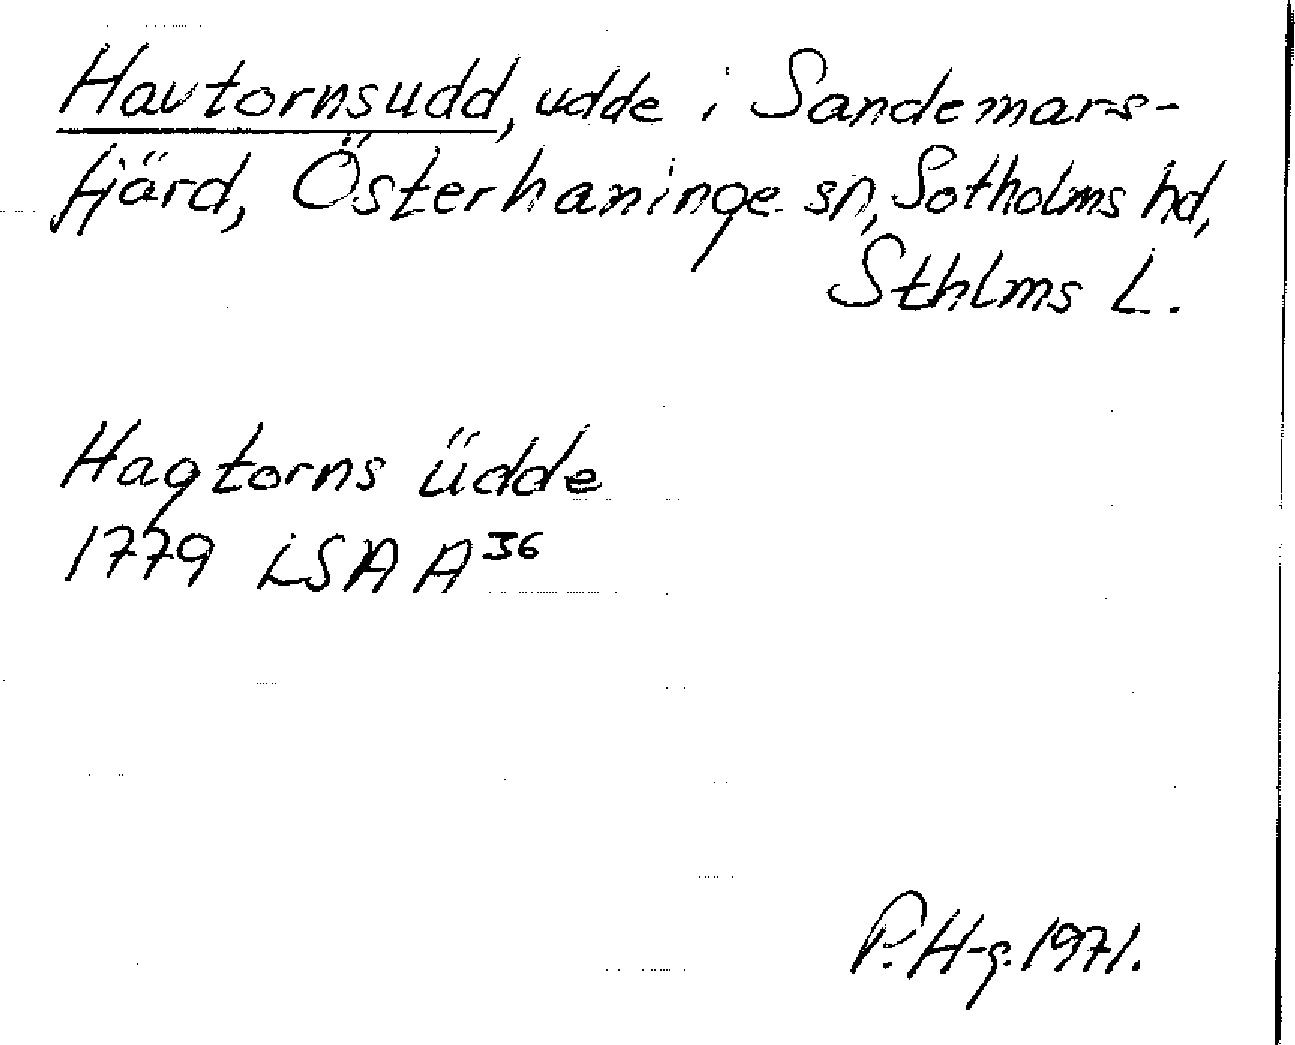 Havtornsudd, udde i Sandemars-
fjärd, Österhaninge sn, Sotholms hd,
Sthlms L.
Hagtorns üdde
1779 LSA A36
P. H-g. 1971.